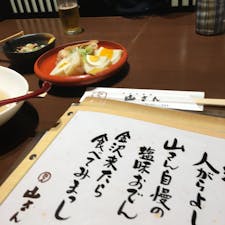 人がらよし
山さん自慢の
塩味おでん
金沢来たら
食べてみまっし
山さん
山さん